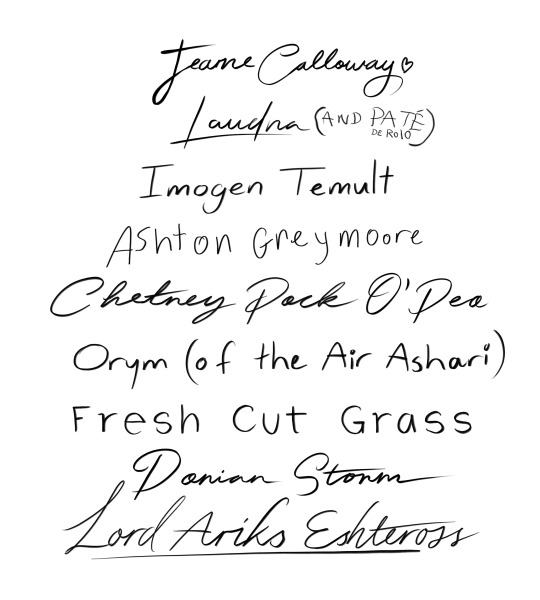 Jeanne Calloway♡
Laudna (AND PATÉ DE ROlO)
Imogen Temult
Ashton Greymoore
Chetney Pock O'Pea
Orym (of the Air Ashari)
Fresh Cut Grass
Dorian Storm
Lord Ariks Eshteross